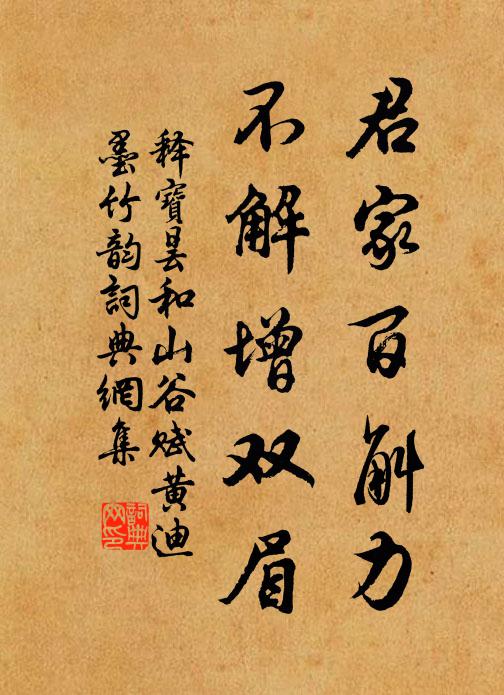 君家百斛力
不解增双眉
释寶昙和山谷赋黄迪
墨竹韵詞典網集
詞典网印